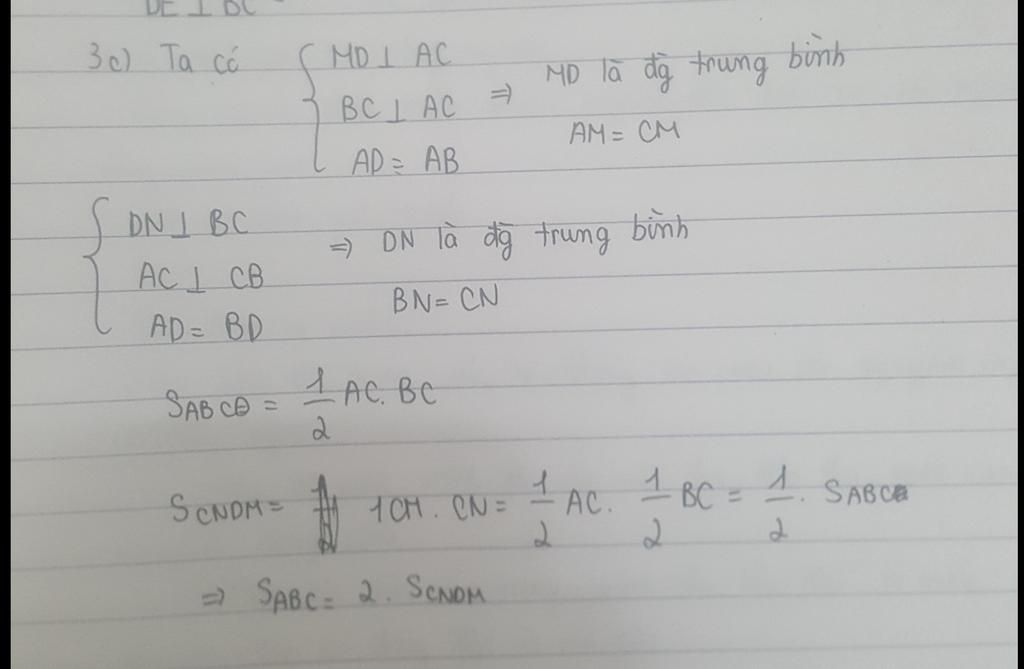 DE ⊥ BC
3c) Ta có { MD ⊥ AC
BC ⊥ AC ⇒ MD là đg trung bình
AD = AB AM = CM
{ DN ⊥ BC
AC ⊥ CB ⇒ DN là đg trung bình
AD = BD BN = CN
SABC = 1/2 AC. BC
SCNDM = 1CM . CN = 1/2 AC. 1/2 BC = 1/2 . SABC
⇒ SABC = 2 . SCNDM